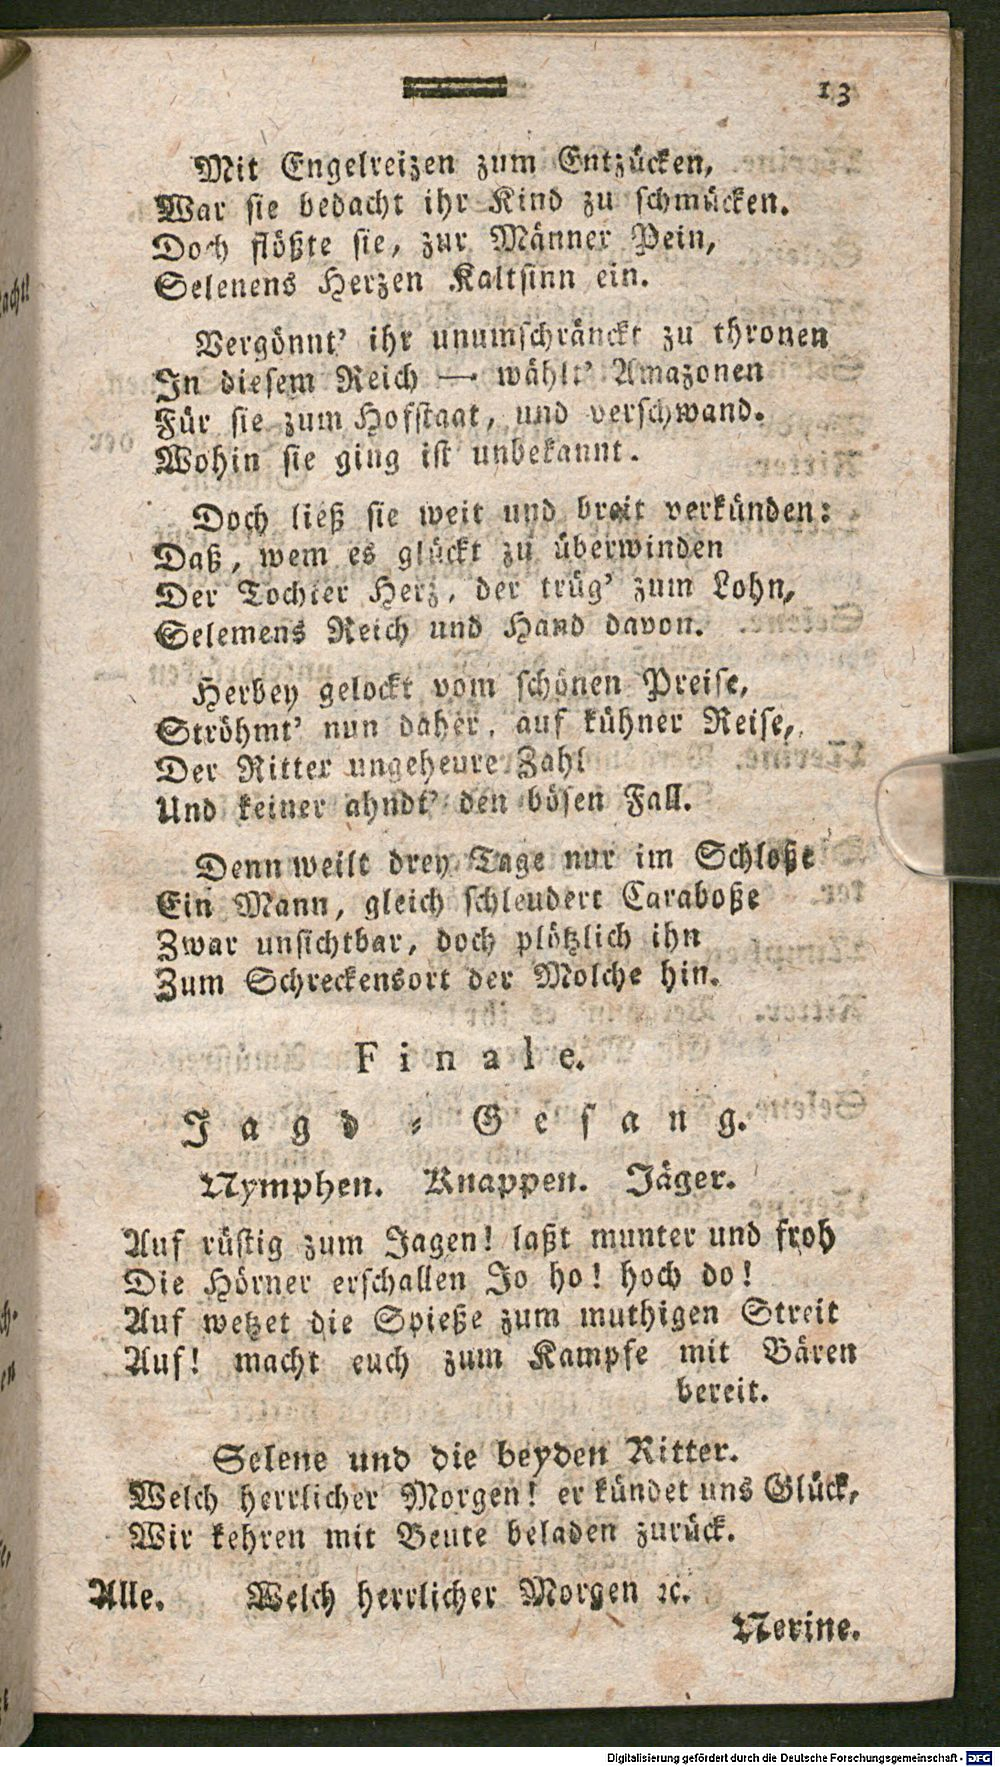 13
Mit Engelreizen zum Entzücken,
War sie bedacht ihr Kind zu schmücken.
Doch flößte sie, zur Männer Pein,
Selenens Herzen Kaltsinn ein.
Vergönnt' ihr unumschränckt zu thronen
In diesem Reich — wählt' Amazonen
Für sie zum Hofstaat, und verschwand.
Wohin sie ging ist unbekannt.
Doch ließ sie weit und breit verkünden:
Daß, wem es glückt zu überwinden
Der Tochter Herz, der trüg' zum Lohn,
Selemens Reich und Hand davon.
Herbey gelockt vom schönen Preise,
Ströhmt' nun daher, auf kühner Reise,
Der Ritter ungeheure Zahl
Und keiner ahndt' den bösen Fall.
Denn weilt drey Tage nur im Schloße
Ein Mann, gleich schleudert Caraboße
Zwar unsichtbar, doch plötzlich ihn
Zum Schreckensort der Molche hin.
Finale.
Jagd-Gesang.
Nymphen. Knappen. Jäger.
Auf rüstig zum Jagen! laßt munter und froh
Die Hörner erschallen Jo ho! hoch do!
Auf wetzet die Spieße zum muthigen Streit
Auf! macht euch zum Kampfe mit Bären
bereit.
Selene und die beyden Ritter.
Welch herrlicher Morgen! er kündet uns Glück,
Wir kehren mit Beute beladen zurück.
Alle. Welch herrlicher Morgen ꝛc.
Nerine.
Digitalisierung gefördert durch die Deutsche Forschungsgemeinschaft - DFG